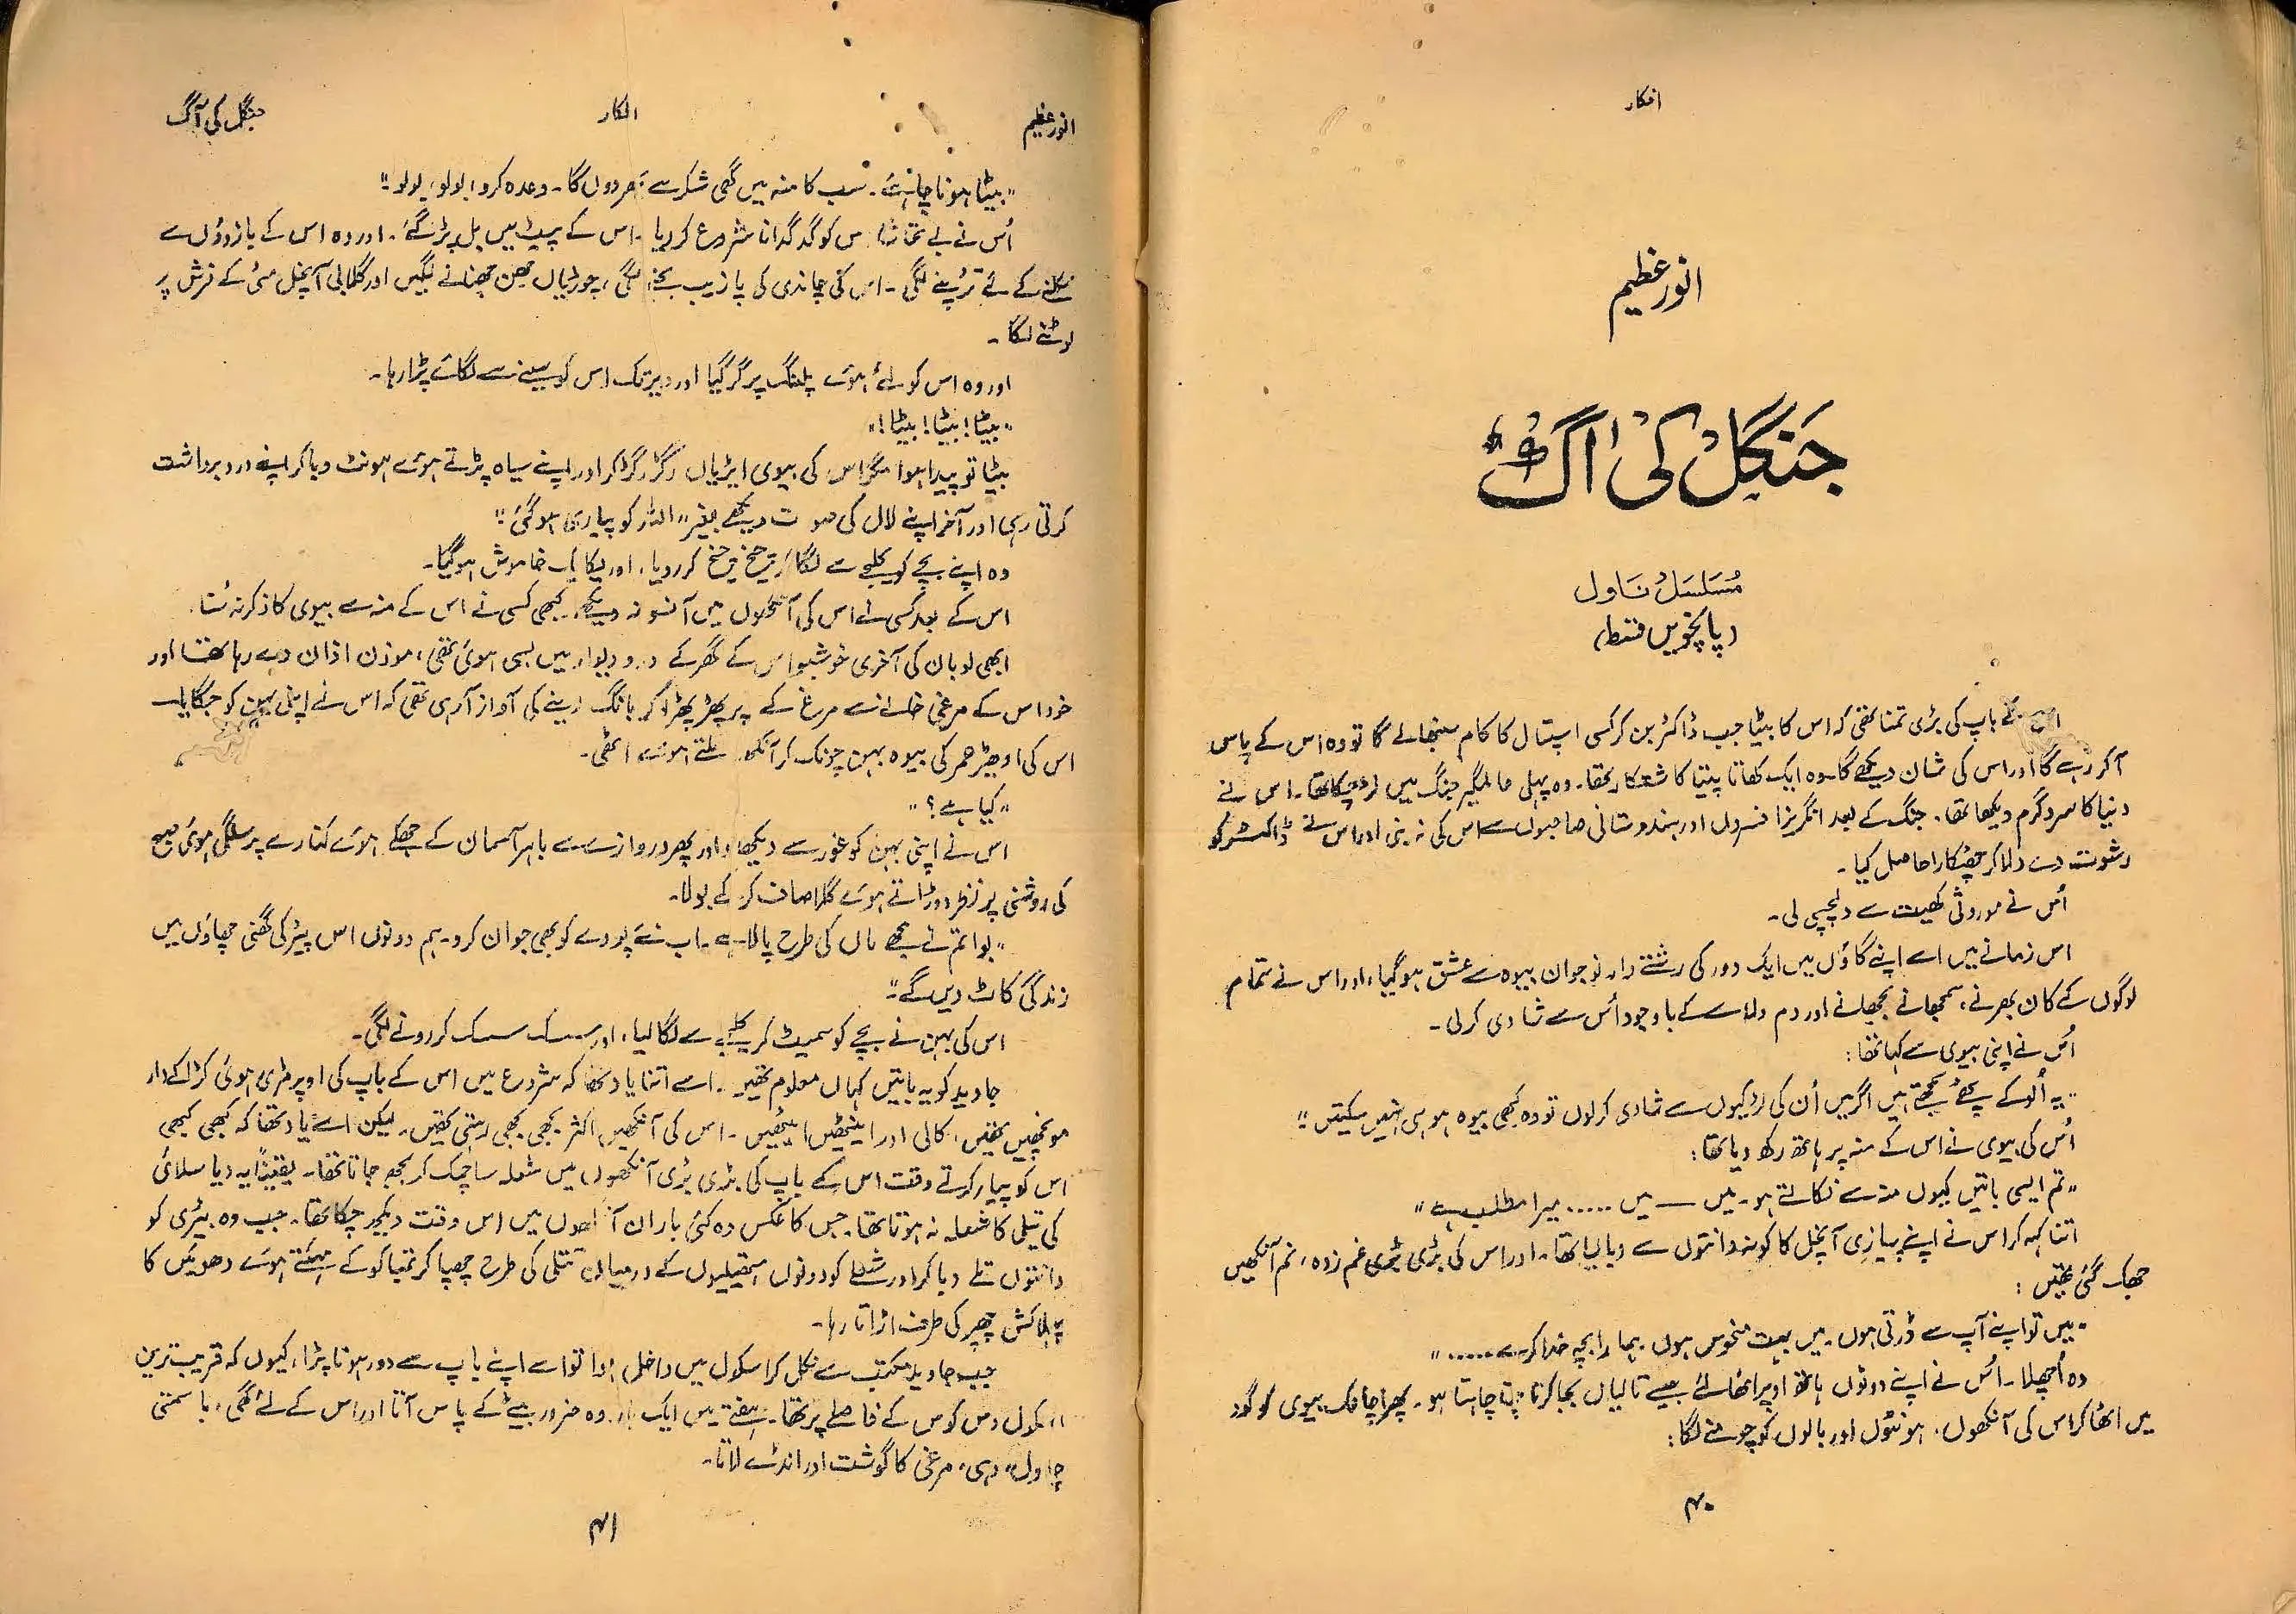 افکار
انور عظیم
جنگل کی آگ
مسلسل ناول
(پانچویں قسط)
اس کے باپ کی بڑی تمنا تھی کہ اس کا بیٹا جب ڈاکٹر بن کر کسی اسپتال کا کام سنبھالے گا تو وہ اس کے پاس
آ کر رہے گا اور اس کی شان دیکھے گا۔ وہ ایک کھاتا پیتا کاشتکار تھا۔ وہ پہلی عالمگیر جنگ میں لڑ چکا تھا۔ اس نے
دنیا کا سرد گرم دیکھا تھا۔ جنگ کے بعد انگریز افسروں اور ہندوستانی صاحبوں سے اس کی نہ بنی اور اس نے ڈاکٹر کو
رشوت دے دلا کر چھٹکارا حاصل کیا۔
اُس نے موروثی کھیت سے دلچسپی لی۔
اس زمانے میں اسے اپنے گاؤں میں ایک دور کی رشتے دار نوجوان بیوہ سے عشق ہو گیا، اور اس نے تمام
لوگوں کے کان بھرنے، سمجھانے بجھانے اور دم دلاسے کے باوجود اُس سے شادی کر لی۔
اُس نے اپنی بیوی سے کہا تھا:
"یہ اُلو کے پٹھے سمجھتے ہیں اگر میں اُن کی لڑکیوں سے شادی کر لوں تو وہ کبھی بیوہ ہو ہی نہیں سکیتں"
اُس کی بیوی نے اس کے منہ پر ہاتھ رکھ دیا تھا:
"تم ایسی باتیں کیوں منہ سے نکالتے ہو۔ میں — میں ..... میرا مطلب ہے"
اتنا کہہ کر اس نے اپنے پیازی آنچل کا کونہ دانتوں سے دبا لیا تھا۔ اور اس کی بڑی بڑی غم زدہ، نم آنکھیں
جھک گئی تھیں:
"میں تو اپنے آپ سے ڈرتی ہوں۔ میں بہت منحوس ہوں۔ ہمارا بچہ خدا کرے ......"
وہ اُچھلا۔ اُس نے اپنے دونوں ہاتھ اوپر اٹھا لئے جیسے تالیاں بجا کر ناچنا چاہتا ہو۔ پھر اچانک بیوی کو گود
میں اٹھا کر اس کی آنکھوں، ہونٹوں اور بالوں کو چومنے لگا:
۴۰
انور عظیم
افکار
جنگل کی آگ
"بیٹا ہونا چاہئے۔ سب کا منہ میں گھی شکر سے بھر دوں گا۔ وعدہ کرو، بولو، بولو"
اُس نے بے تحاشا اس کو گدگدانا شروع کر دیا۔ اس کے پیٹ میں بل پڑ گئے۔ اور وہ اس کے بازوؤں سے
نکلنے کے لئے تڑپنے لگی۔ اس کی چاندی کی پازیب بجنے لگی، چوڑیاں چھن چھنانے لگیں اور گلابی آنچل مٹی کے فرش پر
لوٹنے لگا۔
اور وہ اس کو لئے ہوئے پلنگ پر گر گیا اور دیر تک اس کو سینے سے لگائے پڑا رہا۔
"بیٹا! بیٹا! بیٹا!"
بیٹا تو پیدا ہوا مگر اس کی بیوی ایڑیاں رگڑ رگڑ کر اور اپنے سیاہ پڑتے ہوئے ہونٹ دبا کر اپنے درد برداشت
کرتی رہی اور آخر اپنے لال کی صورت دیکھے بغیر "اللہ کو پیاری ہو گئی"
وہ اپنے بچے کو کلیجے سے لگا کر چیخ چیخ کر رویا، اور یکایک خاموش ہو گیا۔
اس کے بعد کسی نے اس کی آنکھوں میں آنسو نہ دیکھے۔ کبھی کسی نے اس کے منہ سے بیوی کا ذکر نہ سُنا۔
ابھی لوبان کی آخری خوشبو اس کے گھر کے در و دیوار میں بسی ہوئی تھی، موذن اذان دے رہا تھا اور
خود اس کے مرغی خانے سے مرغ کے پر پھڑپھڑا کر بانگ دینے کی آواز آ رہی تھی کہ اس نے اپنی بہن کو جگایا۔
اس کی ادھیڑ عمر کی بیوہ بہن چونک کر آنکھ ملتے ہوئے اٹھی۔
"کیا ہے؟"
اس نے اپنی بہن کو غور سے دیکھا اور پھر دروازے سے باہر آسمان کے جھکے ہوئے کنارے پر سلگی ہوئی صبح
کی روشنی پر نظر دوڑاتے ہوئے گلا صاف کر کے بولا۔
"بوا تم نے مجھے ماں کی طرح پالا ہے۔ اب نئے پودے کو بھی جوان کرو۔ ہم دونوں اس پیڑ کی گھنی چھاؤں میں
زندگی کاٹ دیں گے"
اس کی بہن نے بچے کو سمیٹ کر کلیجے سے لگا لیا، اور سسک سسک کر رونے لگی۔
جاوید کو یہ باتیں کہاں معلوم تھیں۔ اسے اتنا یاد تھا کہ شروع میں اس کے باپ کی اوپر مڑی ہوئی کڑاکے دار
مونچھیں تھیں، کالی اور اینٹھیں اینٹھیں۔ اس کی آنکھیں اکثر بجھی بجھی رہتی تھیں۔ لیکن اسے یاد تھا کہ کبھی کبھی
اس کو پیار کرتے وقت اس کے باپ کی بڑی بڑی آنکھوں میں شعلہ سا چمک کر بجھ جاتا تھا۔ یقیناً یہ دیا سلائی
کی تیلی کا شعلہ نہ ہوتا تھا۔ جس کا عکس وہ کئی بار ان آنکھوں میں اس وقت دیکھ چکا تھا۔ جب وہ بیڑی کو
دانتوں تلے دبا کر اور شعلے کو دونوں ہتھیلیوں کے درمیان تتلی کی طرح چھپا کر تمباکو کے مہکتے ہوئے دھوئیں کا
پہلا کش چھپر کی طرف اڑاتا رہا۔
جب جاوید مکتب سے نکل کر اسکول میں داخل ہوا تو اسے اپنے باپ سے دور ہونا پڑا، کیوں کہ قریب ترین
اسکول دس کوس کے فاصلے پر تھا۔ ہفتے میں ایک بار وہ ضرور بیٹے کے پاس آتا اور اس کے لئے گھی، باسمتی
چاول، دہی، مرغی کا گوشت اور انڈے لاتا۔
۴۱